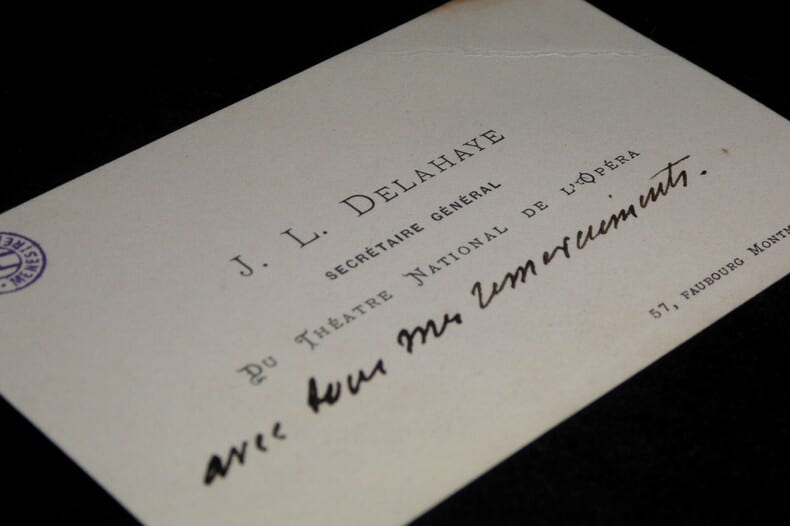 J. L. DELAHAYE
SECRÉTAIRE GÉNÉRAL
DU THÉATRE NATIONAL DE L'OPÉRA
avec tous mes remerciements.
57, FAUBOURG MONTM
MENESTRE